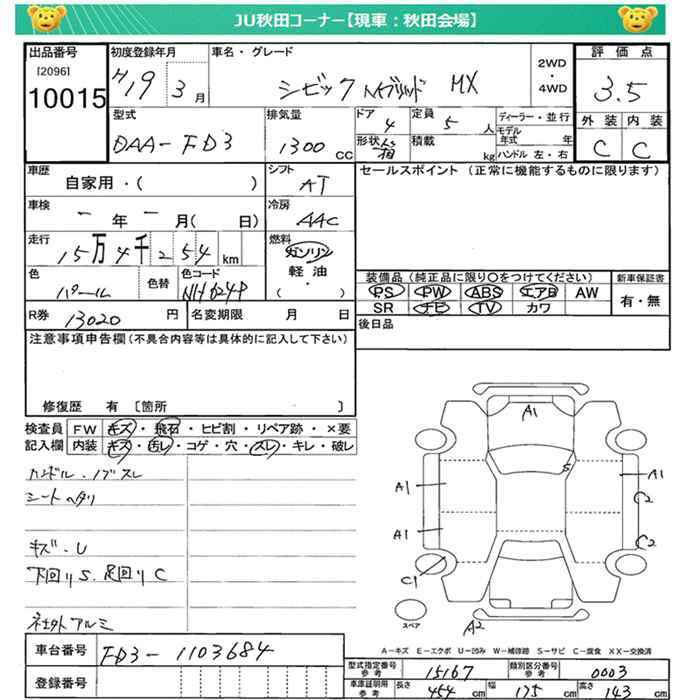 JU秋田コーナー【現車：秋田会場】
出品番号 初度登録年月 車名・グレード 2WD・4WD 評価点
[2096]
10015 H19 3月 シビック ハイブリッド MX 3.5
型式 排気量 ドア 定員 ディーラー・並行 外装 内装
DAA-FD3 1300 CC 4 5 人 モデル年式 年 C C
形状 箱 積載 kg ハンドル 左・右
車歴 シフト セールスポイント (正常に機能するものに限ります)
自家用・( ) AT
車検 冷房
ー 年 ー 月( 日) AAC
走行 燃料
15万4千254km ガソリン
軽油
・( )
色 色替 色コード 装備品 (純正品に限り○をつけてください) 新車保証書
パール NH624P PS PW ABS エアB AW 有・無
SR ナビ TV カワ
R券 13020 円 名変期限 月 日 後日品
注意事項申告欄(不具合内容等は具体的に記入して下さい)
修復歴 有 〔箇所 〕
検査員 FW キズ・飛石・ヒビ割・リペア跡・×要
記入欄 内装 キズ・汚レ・コゲ・穴・スレ・キレ・破レ
ハンドル・ノブスレ
シートヘタリ
キズ・U
下回りS.足回りC
社外アルミ
A1
S
A1 A1
C2
A1 C2
C1
スペア A2
A－キズ E－エクボ U－凹み W－補修跡 S－サビ C－腐食 XX－交換済
車台番号 FD3-1103684
登録番号
型式指定番号 参考 15167 類別区分番号 参考 0003
車庫証明用 参考 長さ 454 cm 幅 175 cm 高さ 143 cm